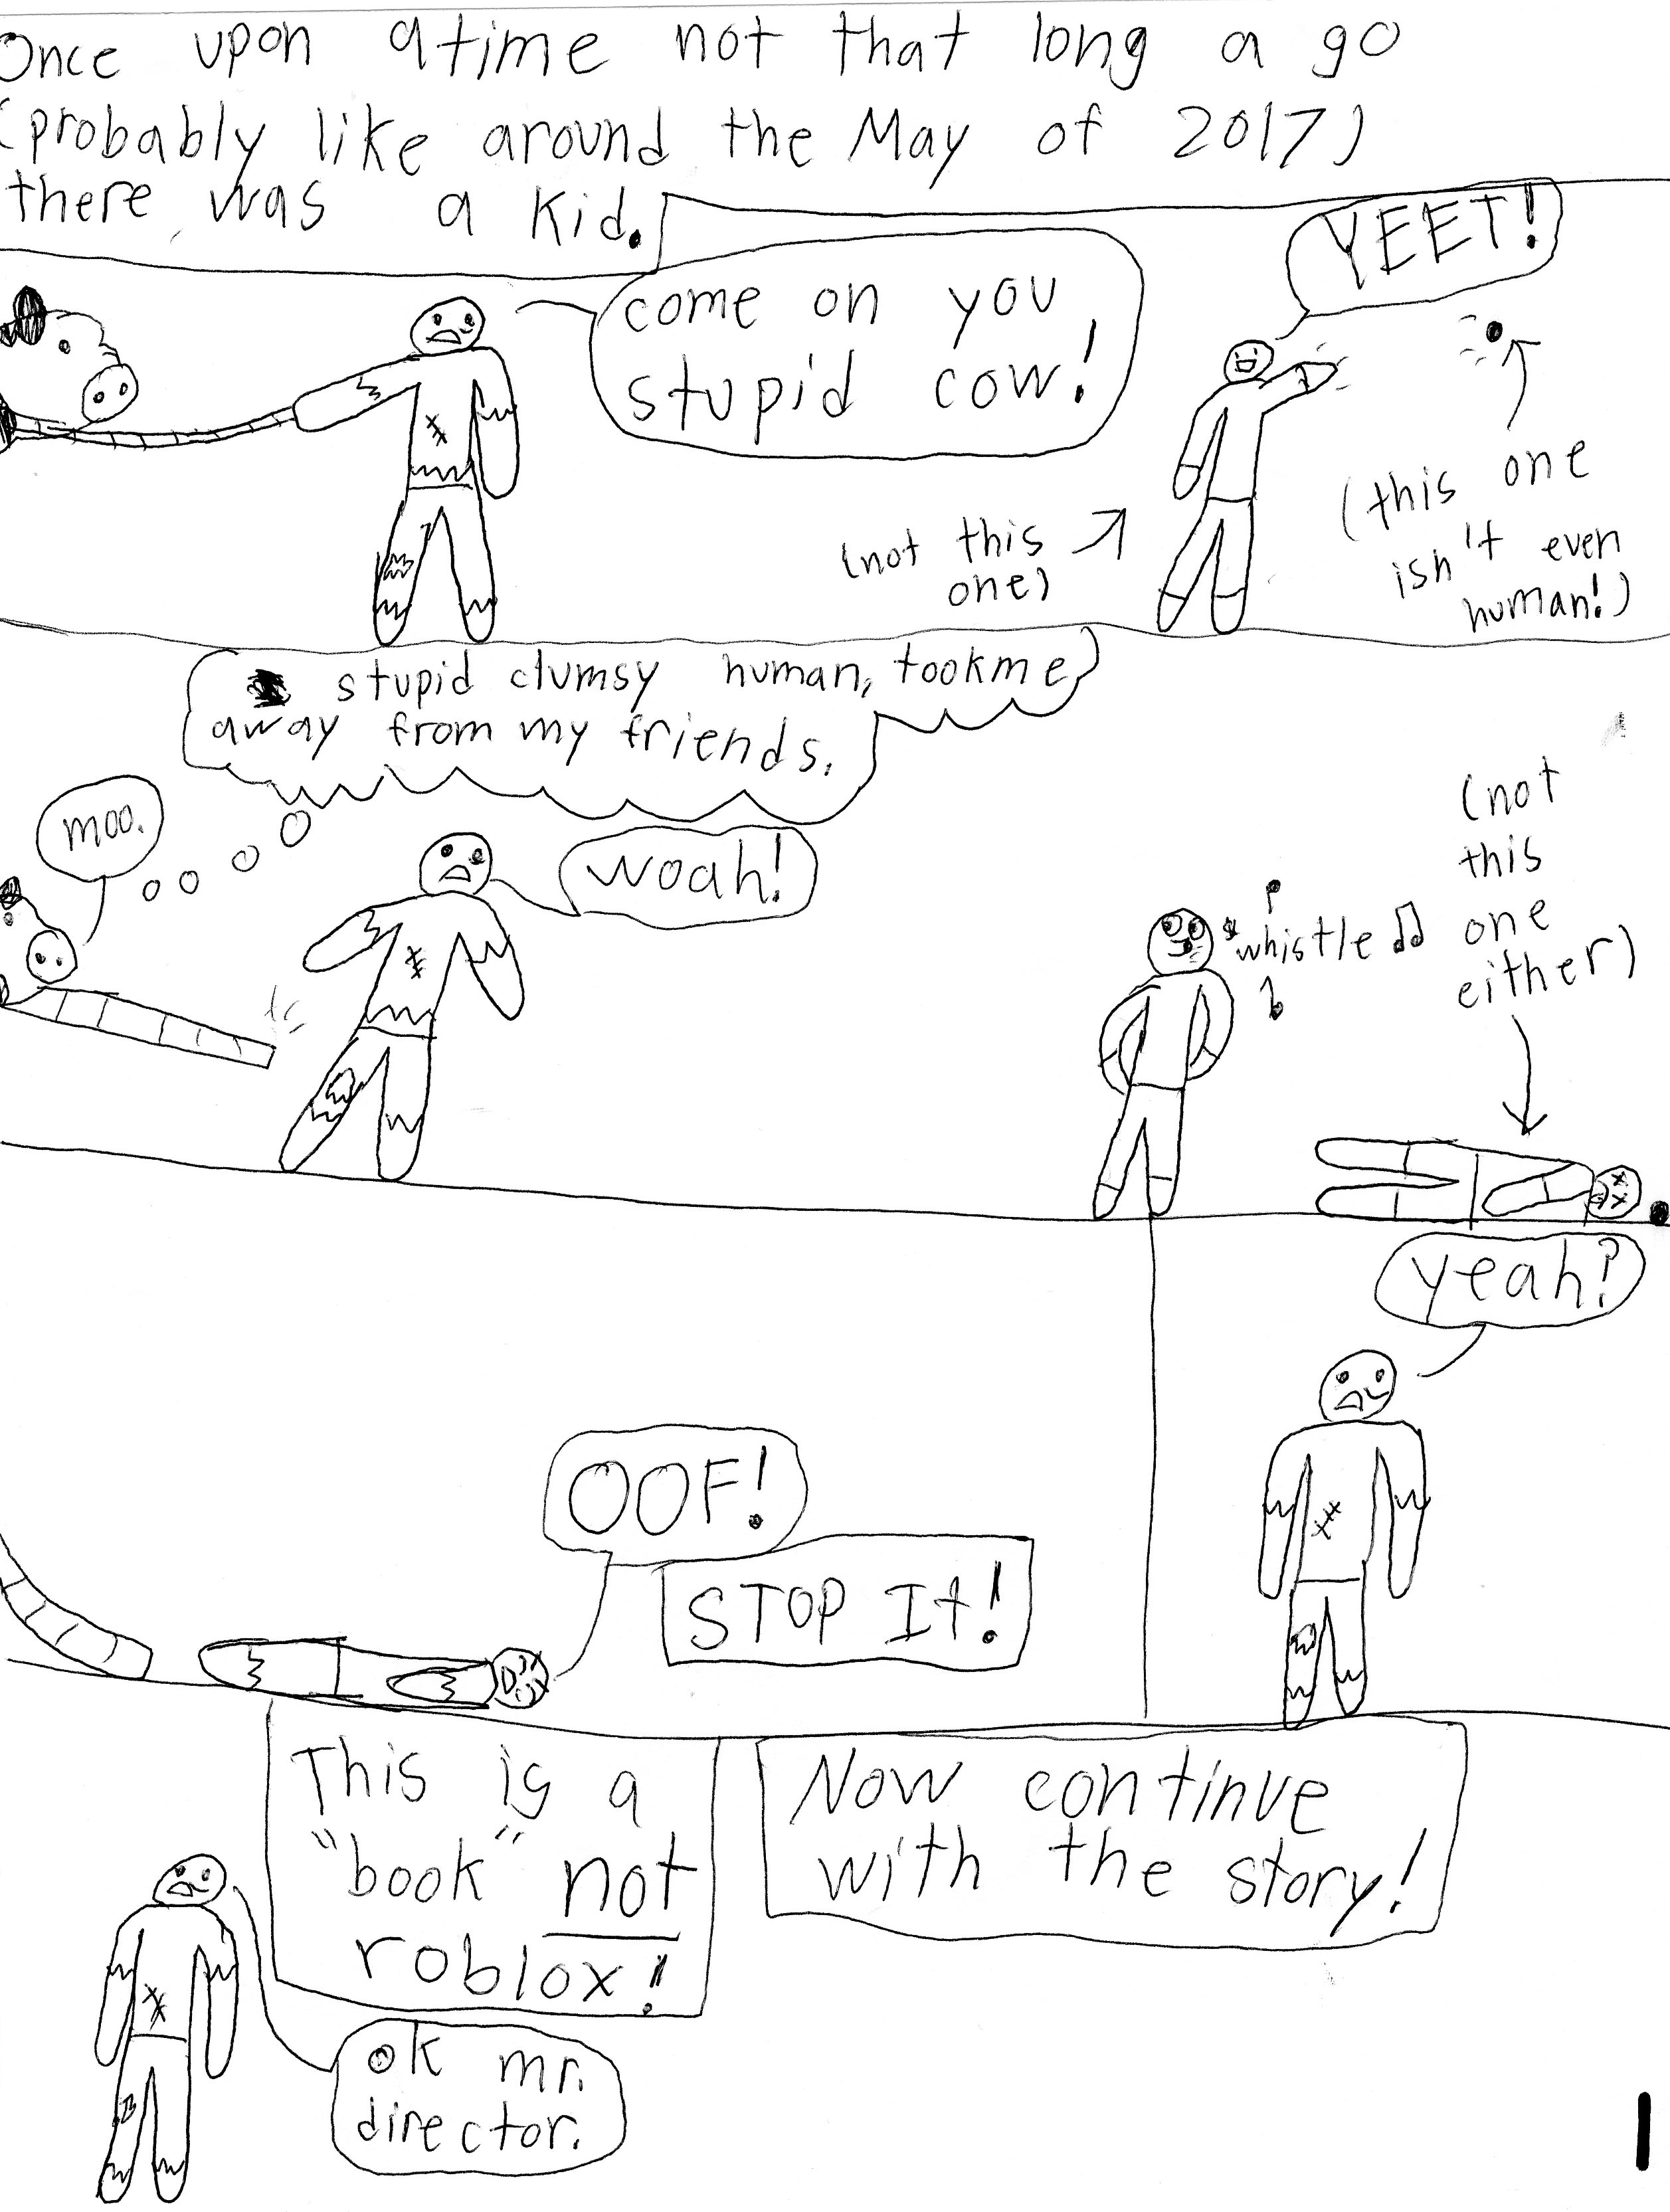 Once upon atime not that long a go
(probably like around the May of 2017)
there was a kid.
come on you
stupid cow!
YEET!
(not this
one)
(this one
isn't even
human!)
stupid clumsy human, tookme
away from my friends.
moo.
woah!
whistle
(not
this
one
either)
OOF!
STOP It!
yeah?
This is a
"book" not
roblox!
Now continue
with the story!
ok mr.
director.
1